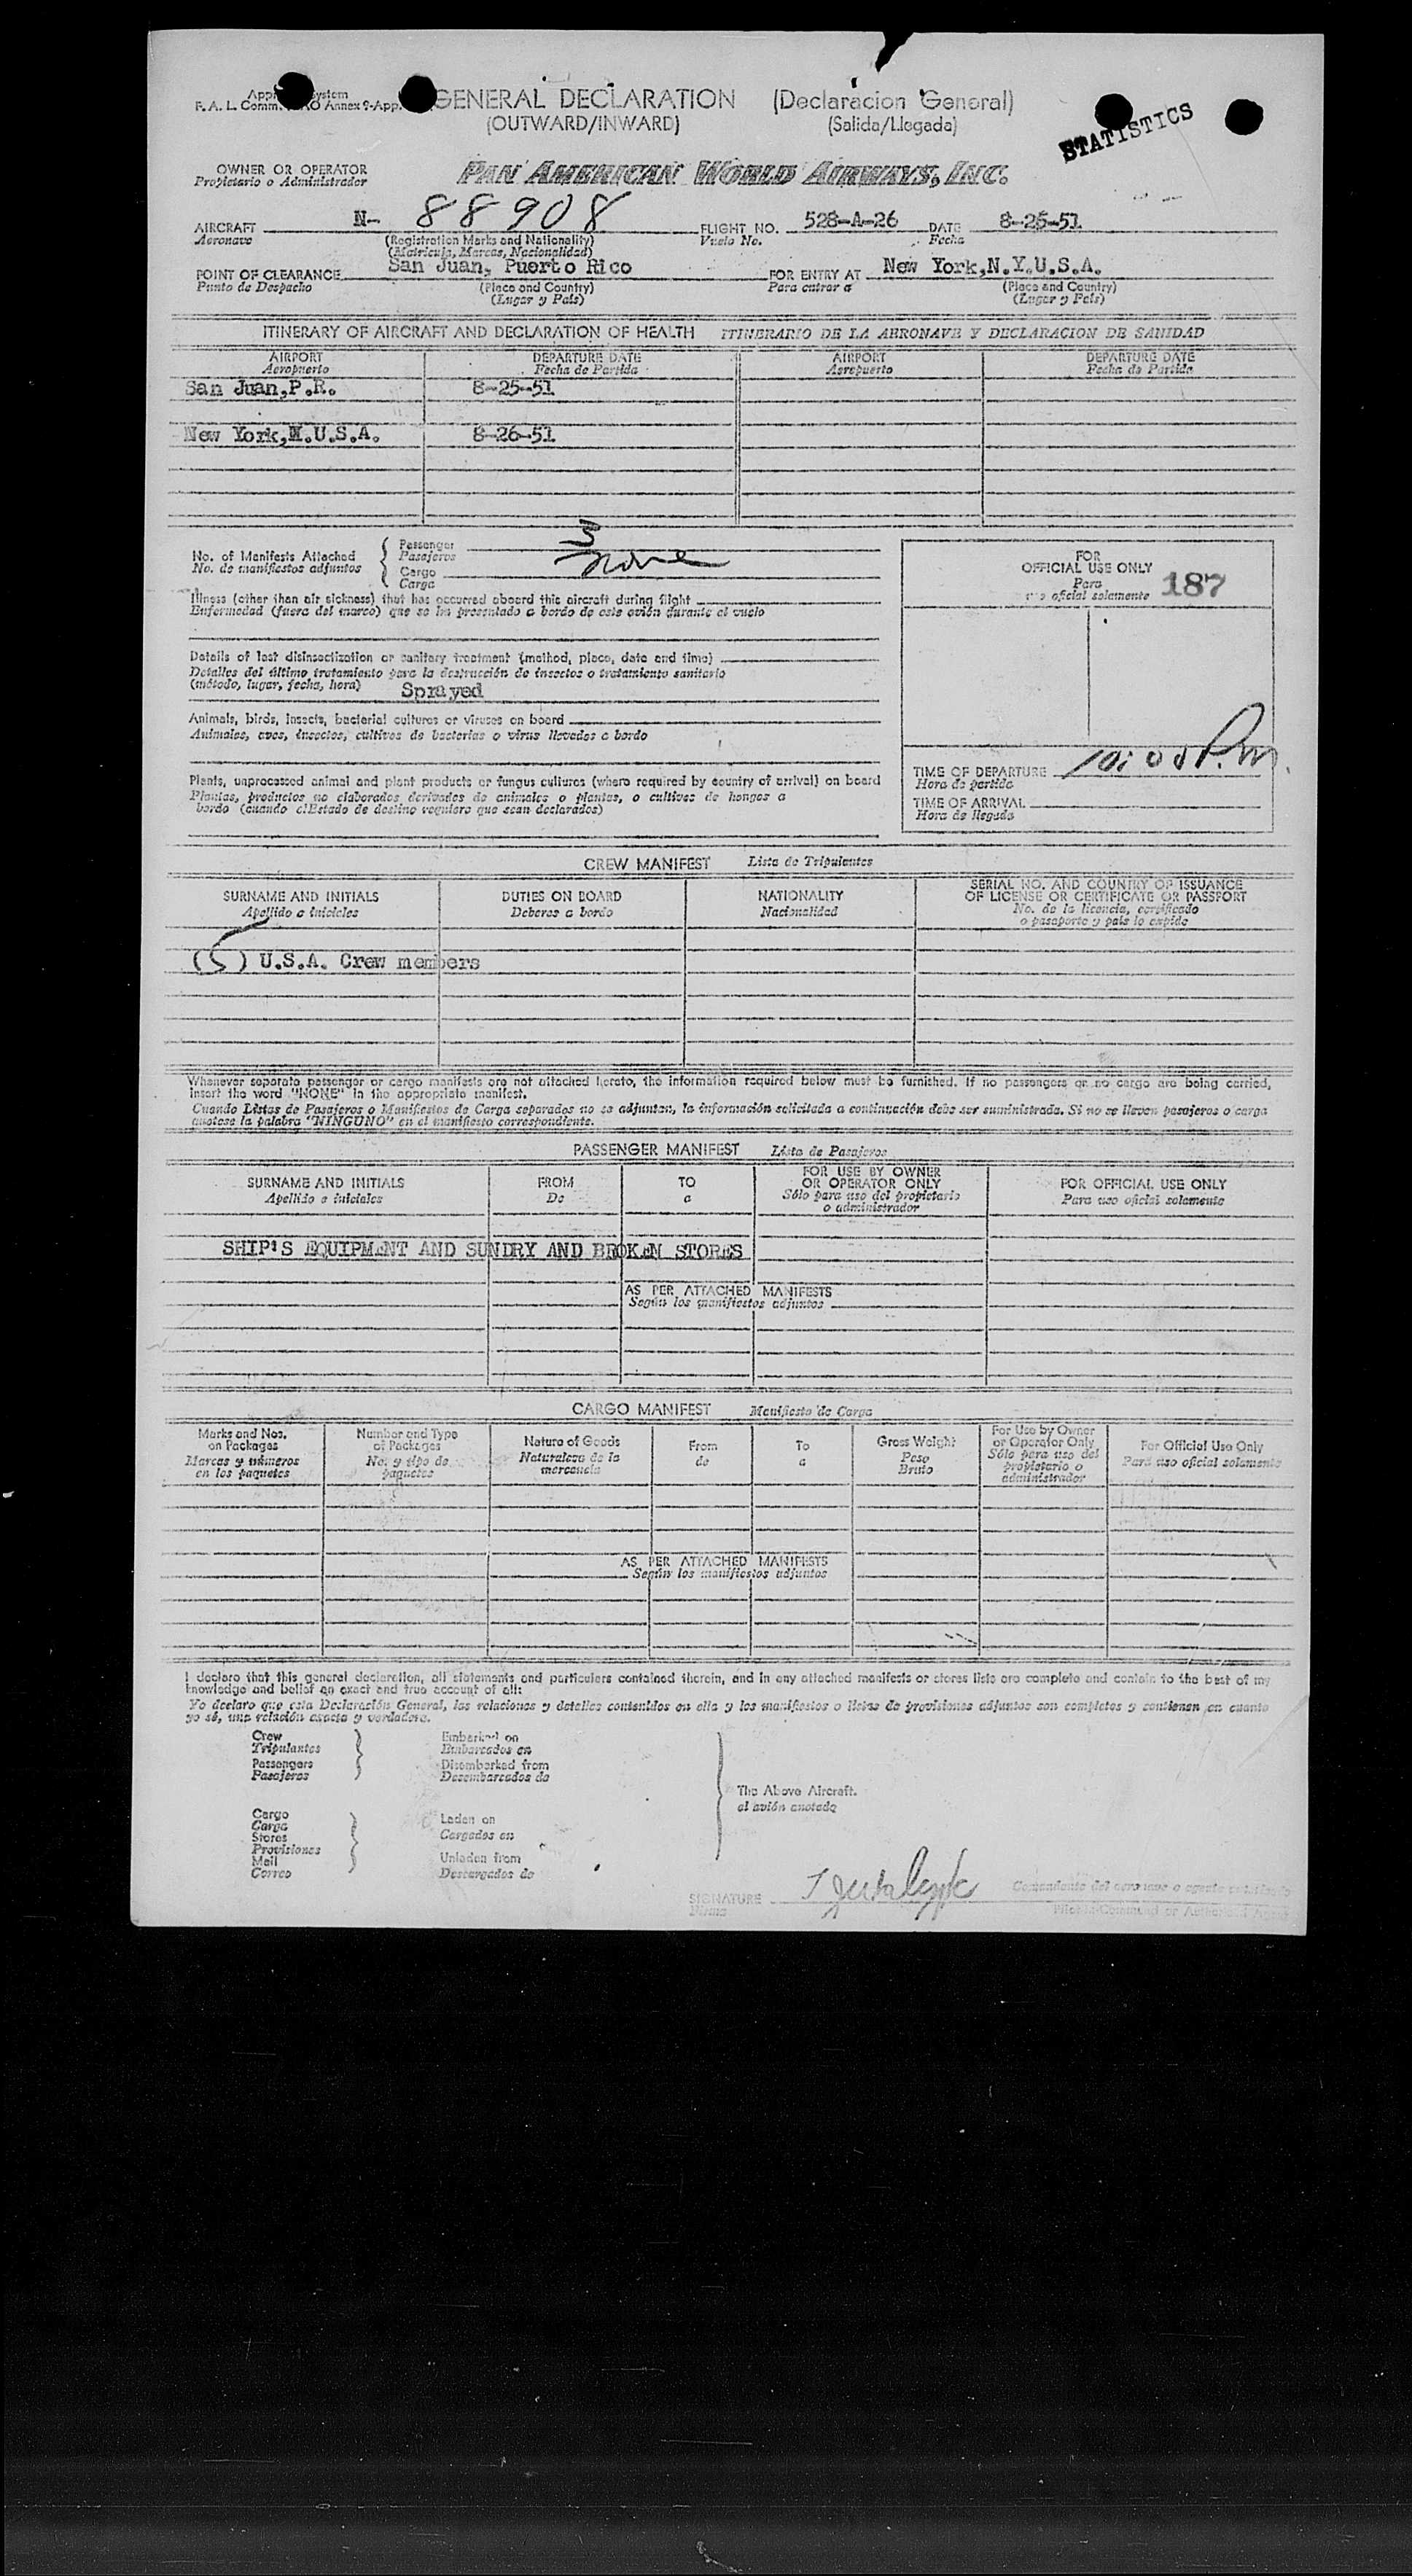 GENERAL DECLARATION (Declaracion General)
F. A. L. Comm. Annex 9-App.
(OUTWARD/INWARD) (Salida/Llegada)
STATISTICS
OWNER OR OPERATOR PAN AMERICAN WORLD AIRWAYS, INC.
Propietario o Administrador
AIRCRAFT N- 88908 FLIGHT NO. 528-A-26 DATE 8-25-51
Aeronave (Registration Marks and Nationality) Vuelo No. Fecha
(Matricula, Marcas, Nacionalidad)
POINT OF CLEARANCE San Juan, Puerto Rico FOR ENTRY AT New York,N.Y.U.S.A.
Punto de Despacho (Place and Country) Para entrar a (Place and Country)
(Lugar y País) (Lugar y País)
ITINERARY OF AIRCRAFT AND DECLARATION OF HEALTH ITINERARIO DE LA AERONAVE Y DECLARACION DE SANIDAD
AIRPORT DEPARTURE DATE AIRPORT DEPARTURE DATE
Aeropuerto Fecha de Partida Aeropuerto Fecha de Partida
San Juan,P.R. 8-25-51
New York,N.U.S.A. 8-26-51
No. of Manifests Attached Passenger 3
No. de manifiestos adjuntos Pasajeros
Cargo None
Carga
Illness (other than air sickness) that has occurred aboard this aircraft during flight
Enfermedad (fuera del mareo) que se ha presentado a bordo de este avión durante el vuelo
Details of last disinsectization or sanitary treatment (method, place, date and time)
Detalles del último tratamiento para la destrucción de insectos o tratamiento sanitario
(método, lugar, fecha, hora) Sprayed
Animals, birds, insects, bacterial cultures or viruses on board
Animales, aves, insectos, cultivos de bacterias o virus llevados a bordo
Plants, unprocessed animal and plant products or fungus cultures (where required by country of arrival) on board
Plantas, productos no elaborados derivados de animales o plantas, o cultivos de hongos a
bordo (cuando el Estado de destino requiere que sean declarados)
FOR
OFFICIAL USE ONLY
Para
uso oficial solamente 187
TIME OF DEPARTURE P.m.
Hora de partida
TIME OF ARRIVAL
Hora de llegada
CREW MANIFEST Lista de Tripulantes
SURNAME AND INITIALS DUTIES ON BOARD NATIONALITY SERIAL NO. AND COUNTRY OF ISSUANCE
Apellido e iniciales Deberes a bordo Nacionalidad OF LICENSE OR CERTIFICATE OR PASSPORT
No. de la licencia, certificado
o pasaporte y país lo expide
(5) U.S.A. Crew members
Whenever separate passenger or cargo manifests are not attached hereto, the information required below must be furnished. If no passengers or no cargo are being carried,
insert the word "NONE" in the appropriate manifest.
Cuando Listas de Pasajeros o Manifiestos de Carga separados no se adjuntan, la información solicitada a continuación debe ser suministrada. Si no se llevan pasajeros o carga
anotese la palabra "NINGUNO" en el manifiesto correspondiente.
PASSENGER MANIFEST Lista de Pasajeros
SURNAME AND INITIALS FROM TO FOR USE BY OWNER FOR OFFICIAL USE ONLY
Apellido e iniciales De a OR OPERATOR ONLY Para uso oficial solamente
Sólo para uso del propietario
o administrador
SHIP'S EQUIPMENT AND SUNDRY AND BROKEN STORES
AS PER ATTACHED MANIFESTS
Según los manifiestos adjuntos
CARGO MANIFEST Manifiesto de Carga
Marks and Nos. Number and Type Nature of Goods From To Gross Weight For Use by Owner For Official Use Only
on Packages of Packages Naturaleza de la de a Peso or Operator Only Para uso oficial solamente
Marcas y números No. y tipo de mercancía Bruto Sólo para uso del
en los paquetes paquetes propietario o
administrador
AS PER ATTACHED MANIFESTS
Según los manifiestos adjuntos
I declare that this general declaration, all statements and particulars contained therein, and in any attached manifests or stores lists are complete and contain to the best of my
knowledge and belief an exact and true account of all:
Yo declaro que esta Declaración General, las relaciones y detalles contenidos en ella y los manifiestos o listas de provisiones adjuntos son completos y contienen en cuanto
yo sé, una relación exacta y verdadera.
Crew Embarked on
Tripulantes Embarcados en
Passengers Disembarked from
Pasajeros Desembarcados de
The Above Aircraft.
el avión anotado
Cargo Laden on
Carga Cargados en
Stores
Provisiones
Mail Unladen from
Correo Descargados de
SIGNATURE Comandante del aeronave o agente
Firma Pilot-in-Command or Authorized Agent